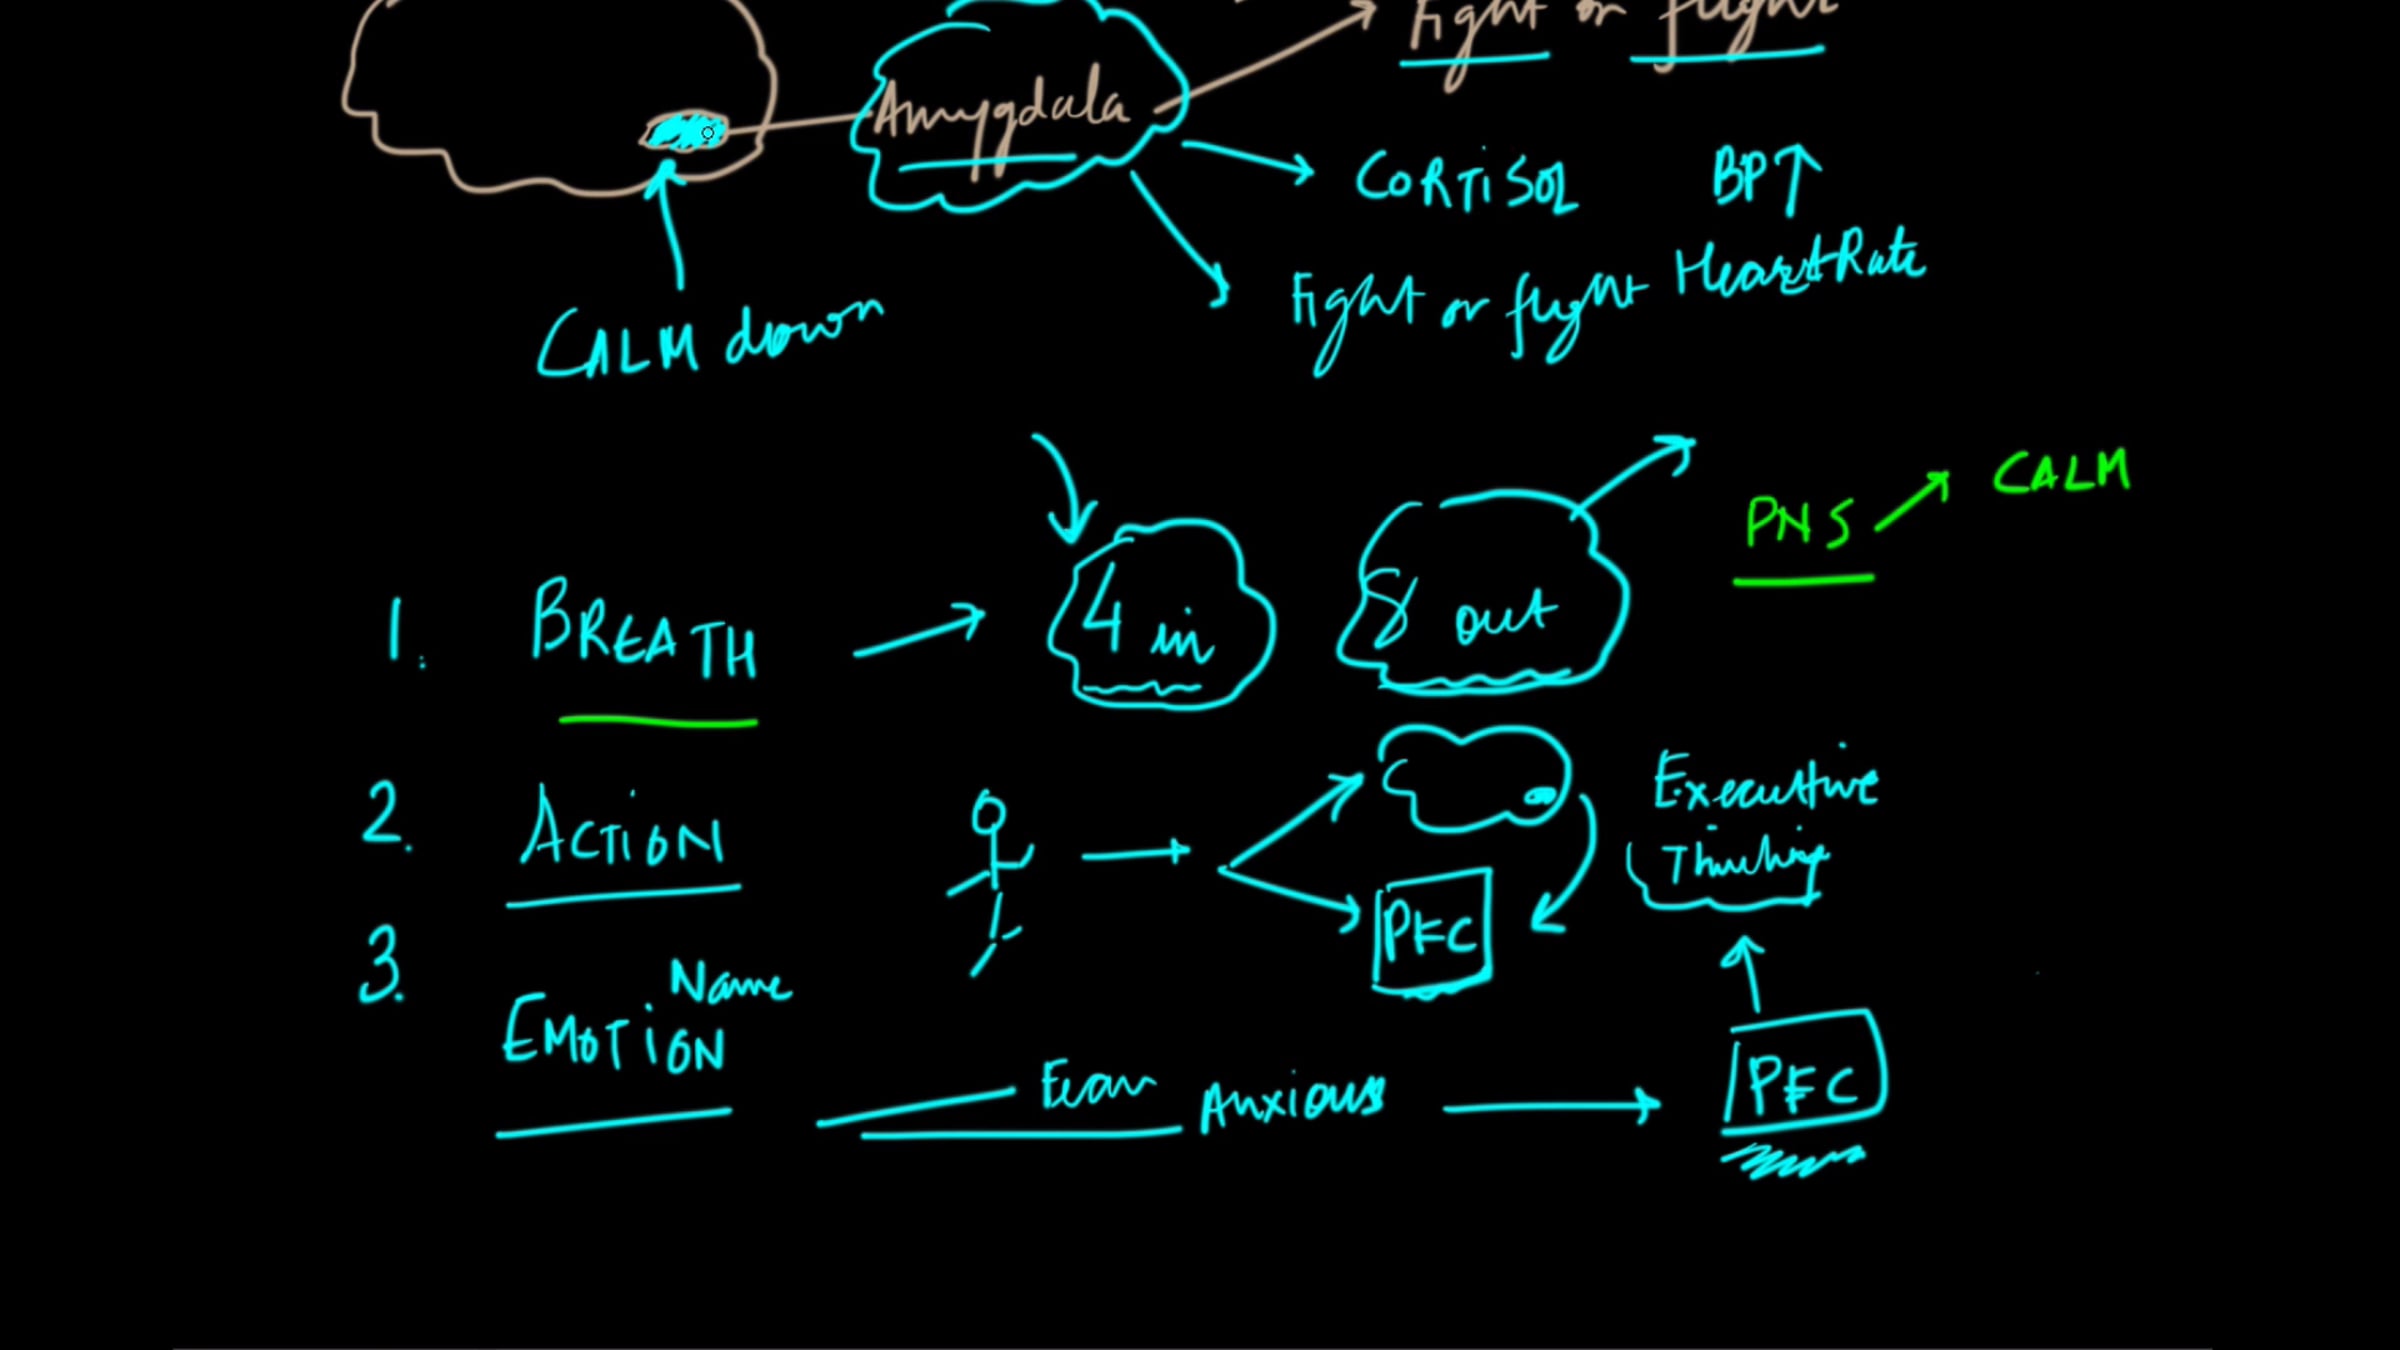 Fight or flight
Amygdala
CORTISOL BP↑
Fight or flight HeartRate
CALM down
PNS → CALM
1. BREATH → 4 in 8 out
2. ACTION
Executive
Thinking
PFC
3. Name
EMOTION
Exam Anxious → PFC